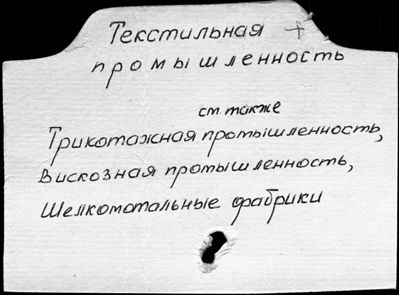 Текстильная +
промышленность
см. также
Трикотажная промышленность,
Вискозная промышленность,
Шелкомотальные фабрики